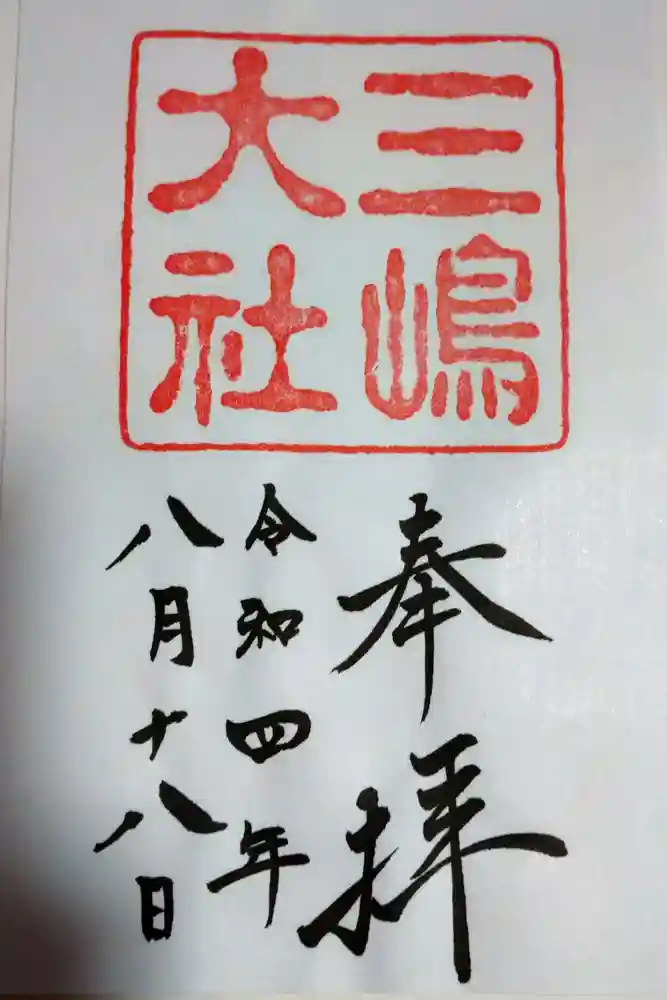 三嶋
大社
奉拝
令和四年
八月十八日